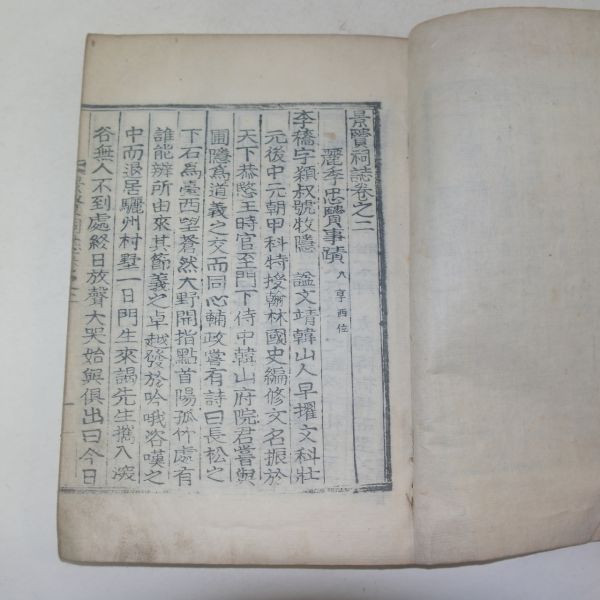 景賢祠誌卷之二
麗季忠賢事蹟 入享西位
李穡字頴叔號牧隱 諡文靖韓山人早擢文科壯
元後中元朝甲科特授翰林國史編修文名振於
天下恭愍王時官至門下侍中韓山府院君嘗與
圃隱爲道義之交而同心輔政嘗有詩曰長松之
下石爲臺西望蒼然大野開指點首陽孤竹處有
誰能辨所由來其節義之卓越發於吟哦咨嘆之
中而退居驪州村墅一日門生來謁先生携入深
谷無人不到處終日放聲大哭始與俱出曰今日